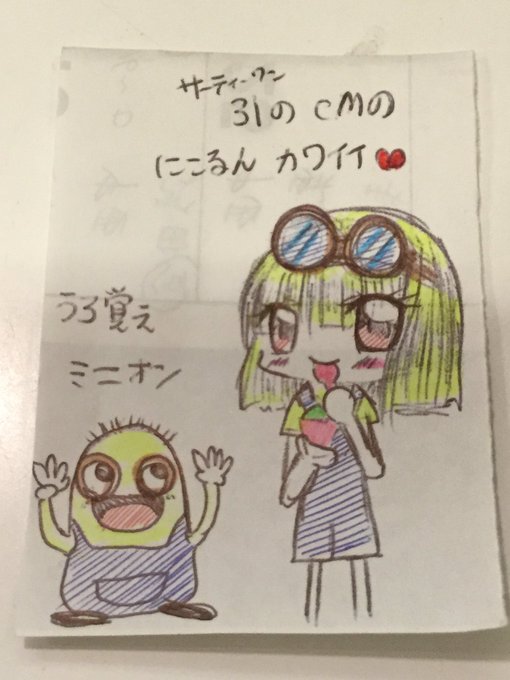 サーティーワン
31の cMの
にこるん カワイイ
うろ覚え
ミニオン